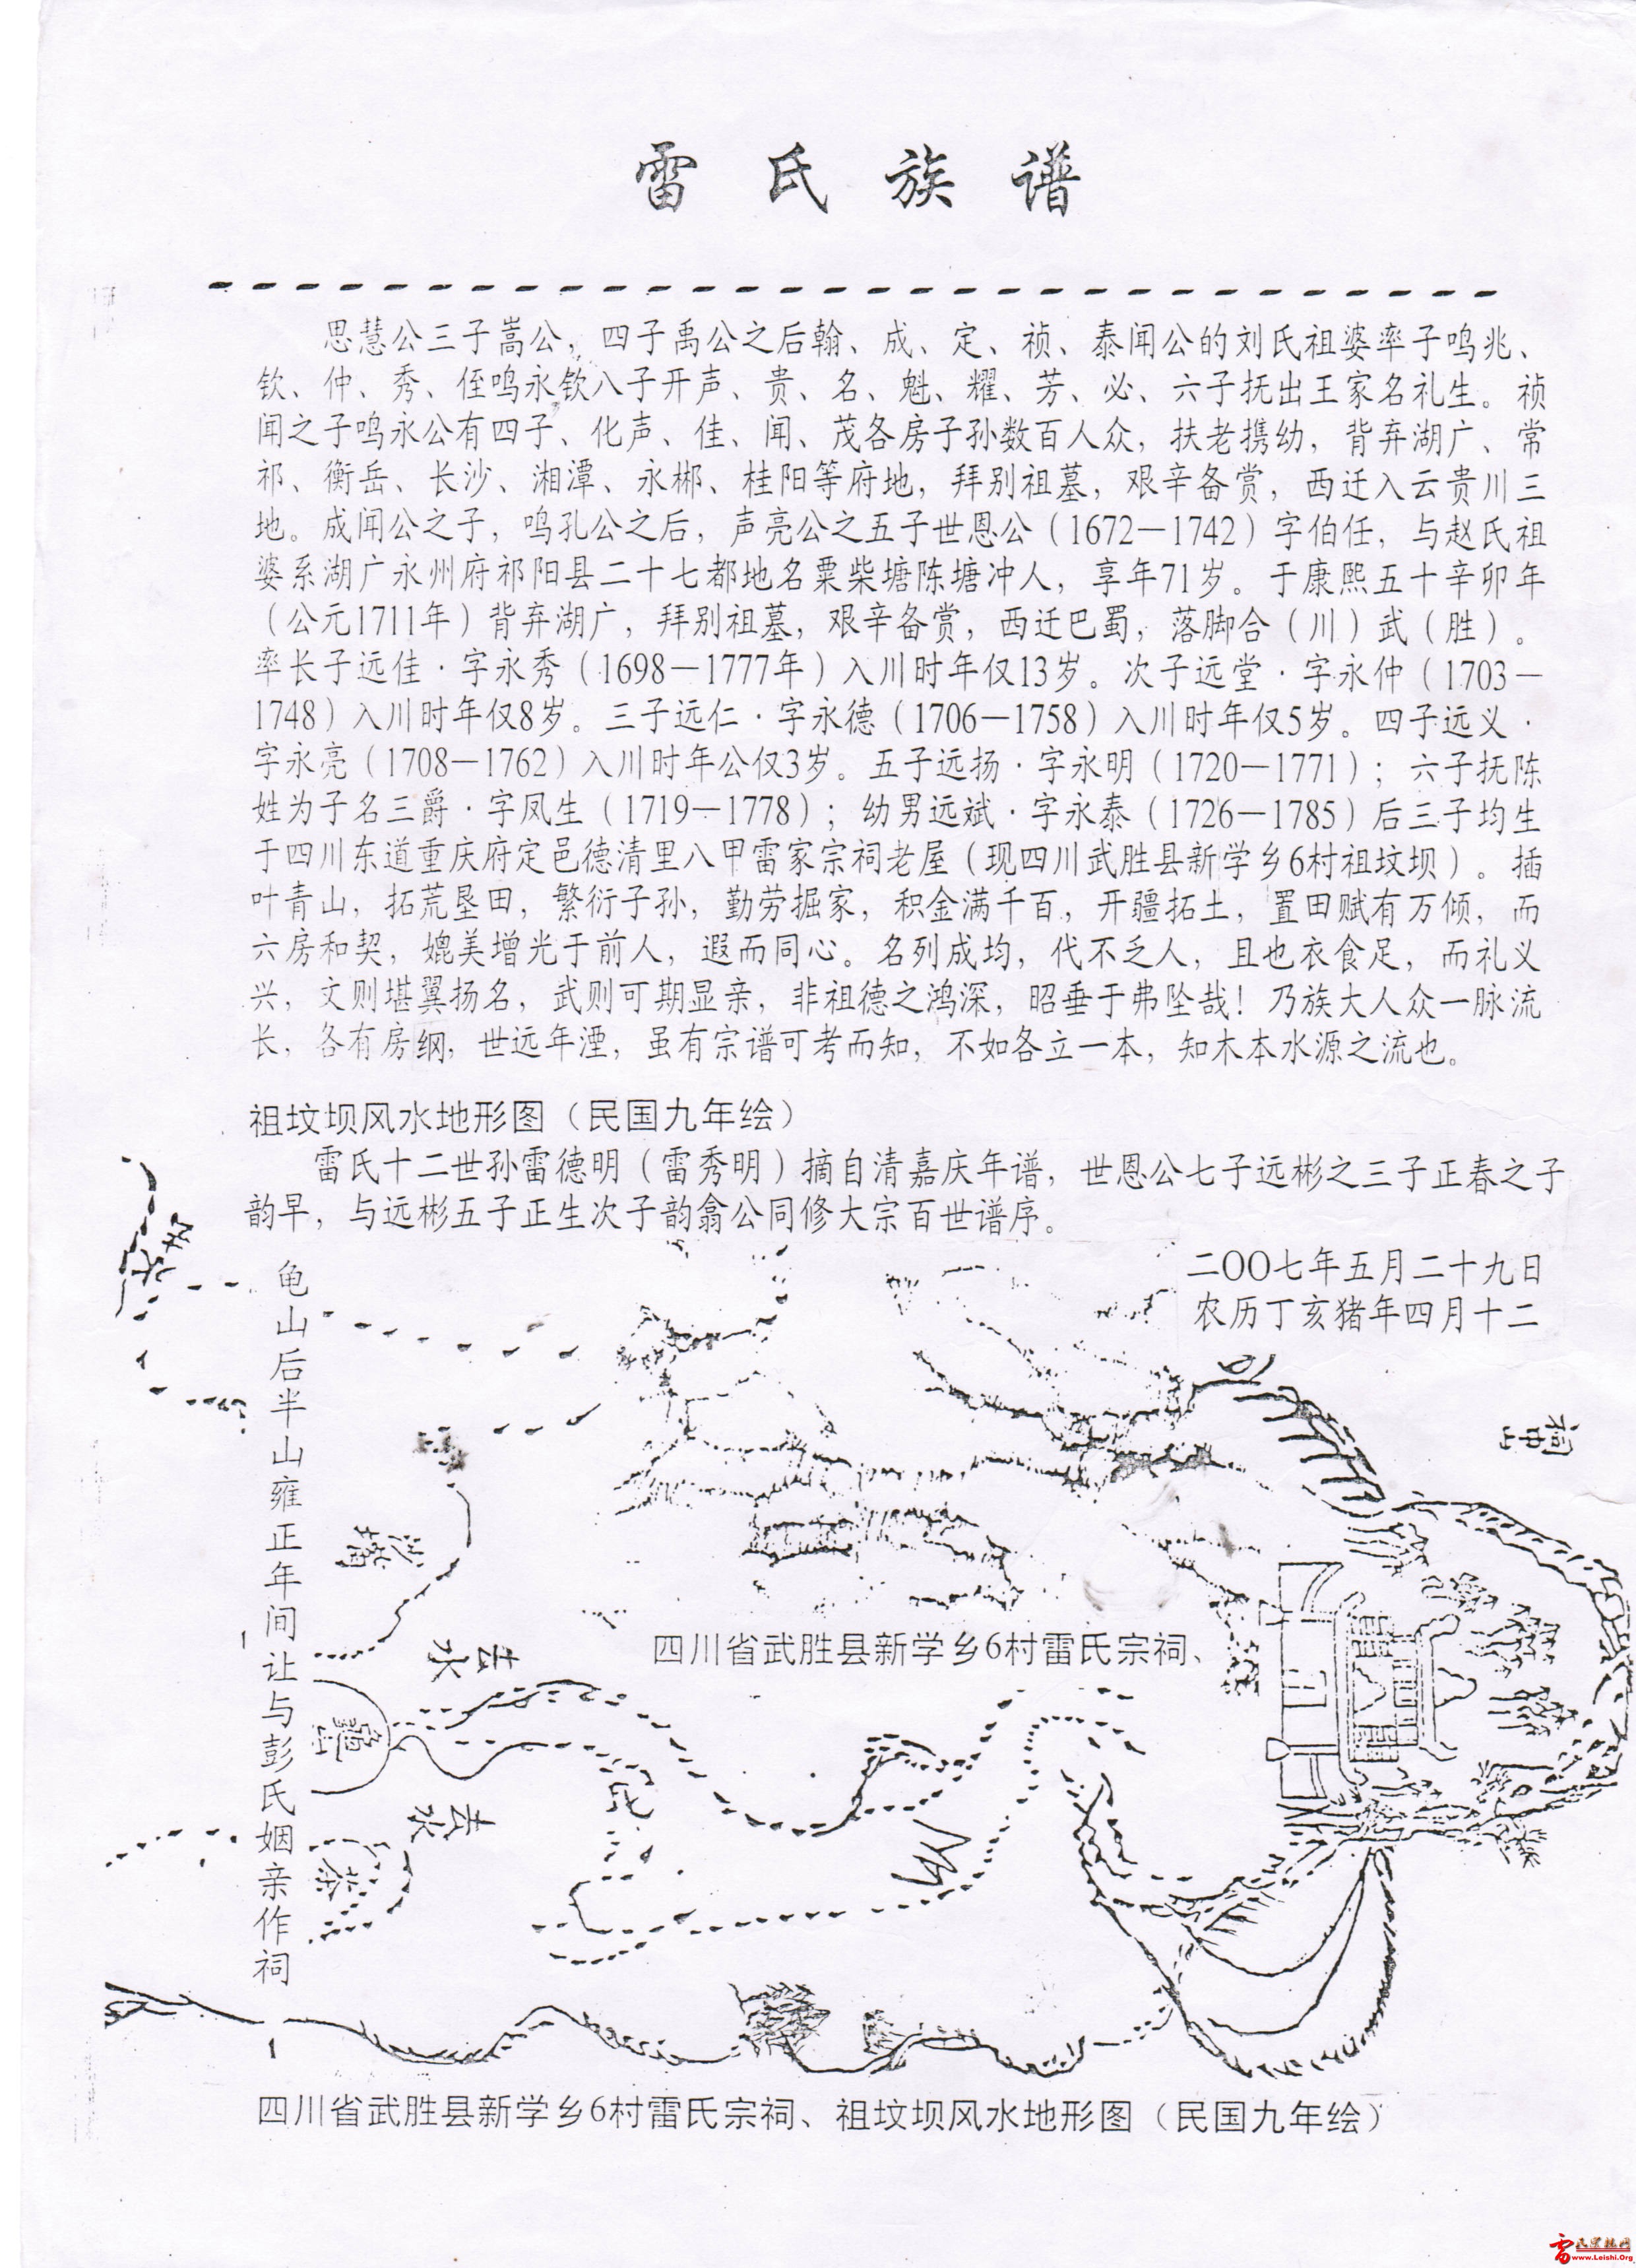 雷氏族谱
思慧公三子嵩公，四子禹公之后翰、成、定、祯、泰闻公的刘氏祖婆率子鸣兆、
钦、仲、秀、侄鸣永钦八子开声、贵、名、魁、耀、芳、必、六子抚出王家名礼生。祯
闻之子鸣永公有四子、化声、佳、闻、茂各房子孙数百人众，扶老携幼，背弃湖广、常
祁、衡岳、长沙、湘潭、永郴、桂阳等府地，拜别祖墓，艰辛备赏，西迁入云贵川三
地。成闻公之子，鸣孔公之后，声亮公之五子世恩公（1672－1742）字伯任，与赵氏祖
婆系湖广永州府祁阳县二十七都地名粟柴塘陈塘冲人，享年71岁。于康熙五十辛卯年
（公元1711年）背弃湖广，拜别祖墓，艰辛备赏，西迁巴蜀，落脚合（川）武（胜）。
率长子远佳·字永秀（1698－1777年）入川时年仅13岁。次子远堂·字永仲（1703－
1748）入川时年仅8岁。三子远仁·字永德（1706－1758）入川时年仅5岁。四子远义·
字永亮（1708－1762）入川时年公仅3岁。五子远扬·字永明（1720－1771）；六子抚陈
姓为子名三爵·字凤生（1719－1778）；幼男远斌·字永泰（1726－1785）后三子均生
于四川东道重庆府定邑德清里八甲雷家宗祠老屋（现四川武胜县新学乡6村祖坟坝）。插
叶青山，拓荒垦田，繁衍子孙，勤劳掘家，积金满千百，开疆拓土，置田赋有万倾，而
六房和契，媲美增光于前人，遐而同心。名列成均，代不乏人，且也衣食足，而礼义
兴，文则堪翼扬名，武则可期显亲，非祖德之鸿深，昭垂于弗坠哉！乃族大人众一脉流
长，各有房纲，世远年湮，虽有宗谱可考而知，不如各立一本，知木本水源之流也。
祖坟坝风水地形图（民国九年绘）
雷氏十二世孙雷德明（雷秀明）摘自清嘉庆年谱，世恩公七子远彬之三子正春之子
韵早，与远彬五子正生次子韵翕公同修大宗百世谱序。
二〇〇七年五月二十九日
农历丁亥猪年四月十二
龟山后半山雍正年间让与彭氏姻亲作祠
祠中山
去水
四川省武胜县新学乡6村雷氏宗祠、
龜山
去水
四川省武胜县新学乡6村雷氏宗祠、祖坟坝风水地形图（民国九年绘）
www.Leishi.Org